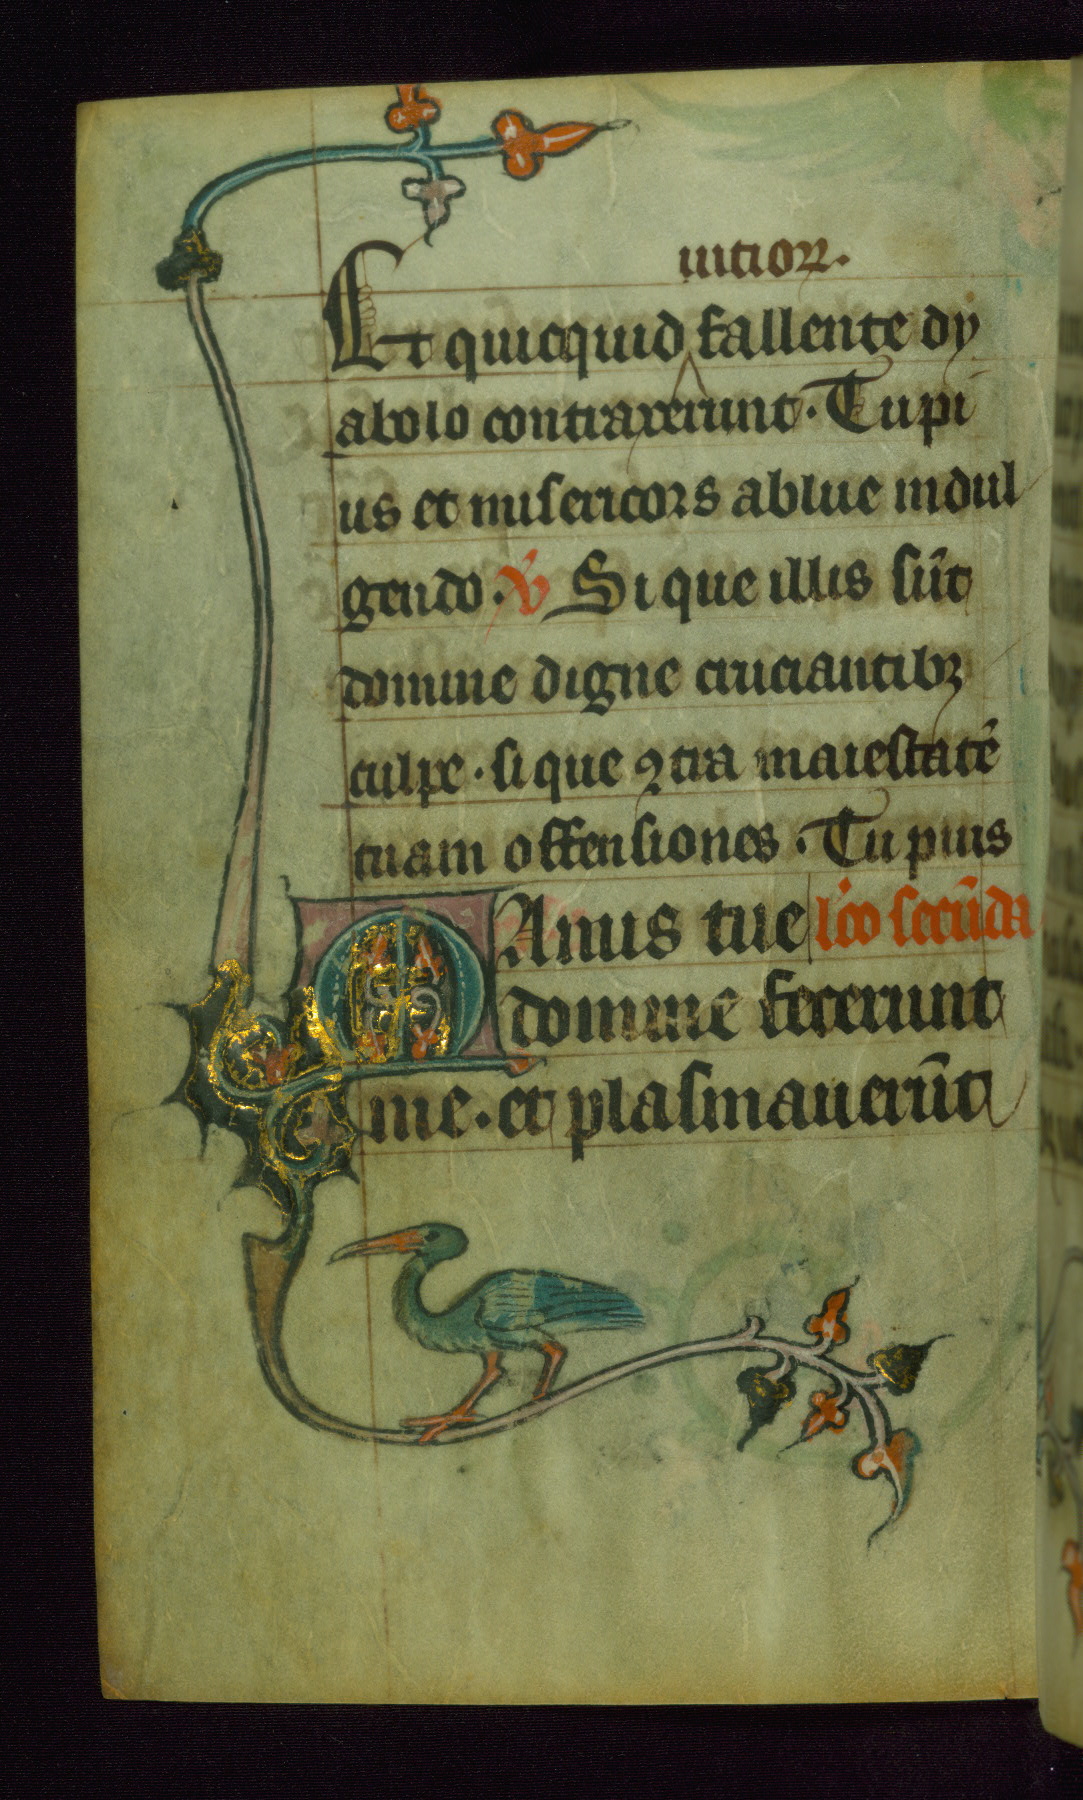 uitioꝝ.
Et quicquid fallente dy
abolo contraxerunt. Tu pi
us et misericors ablue indul
gendo. ℣ Si que illis sūt
domine digne cruciantibꝫ
culpe. si que ꝯtra maiestatē
tuam offensiones. Tu pius
Manus tue lc̄o secūda
domine fecerunt
me. et plasmauerūt